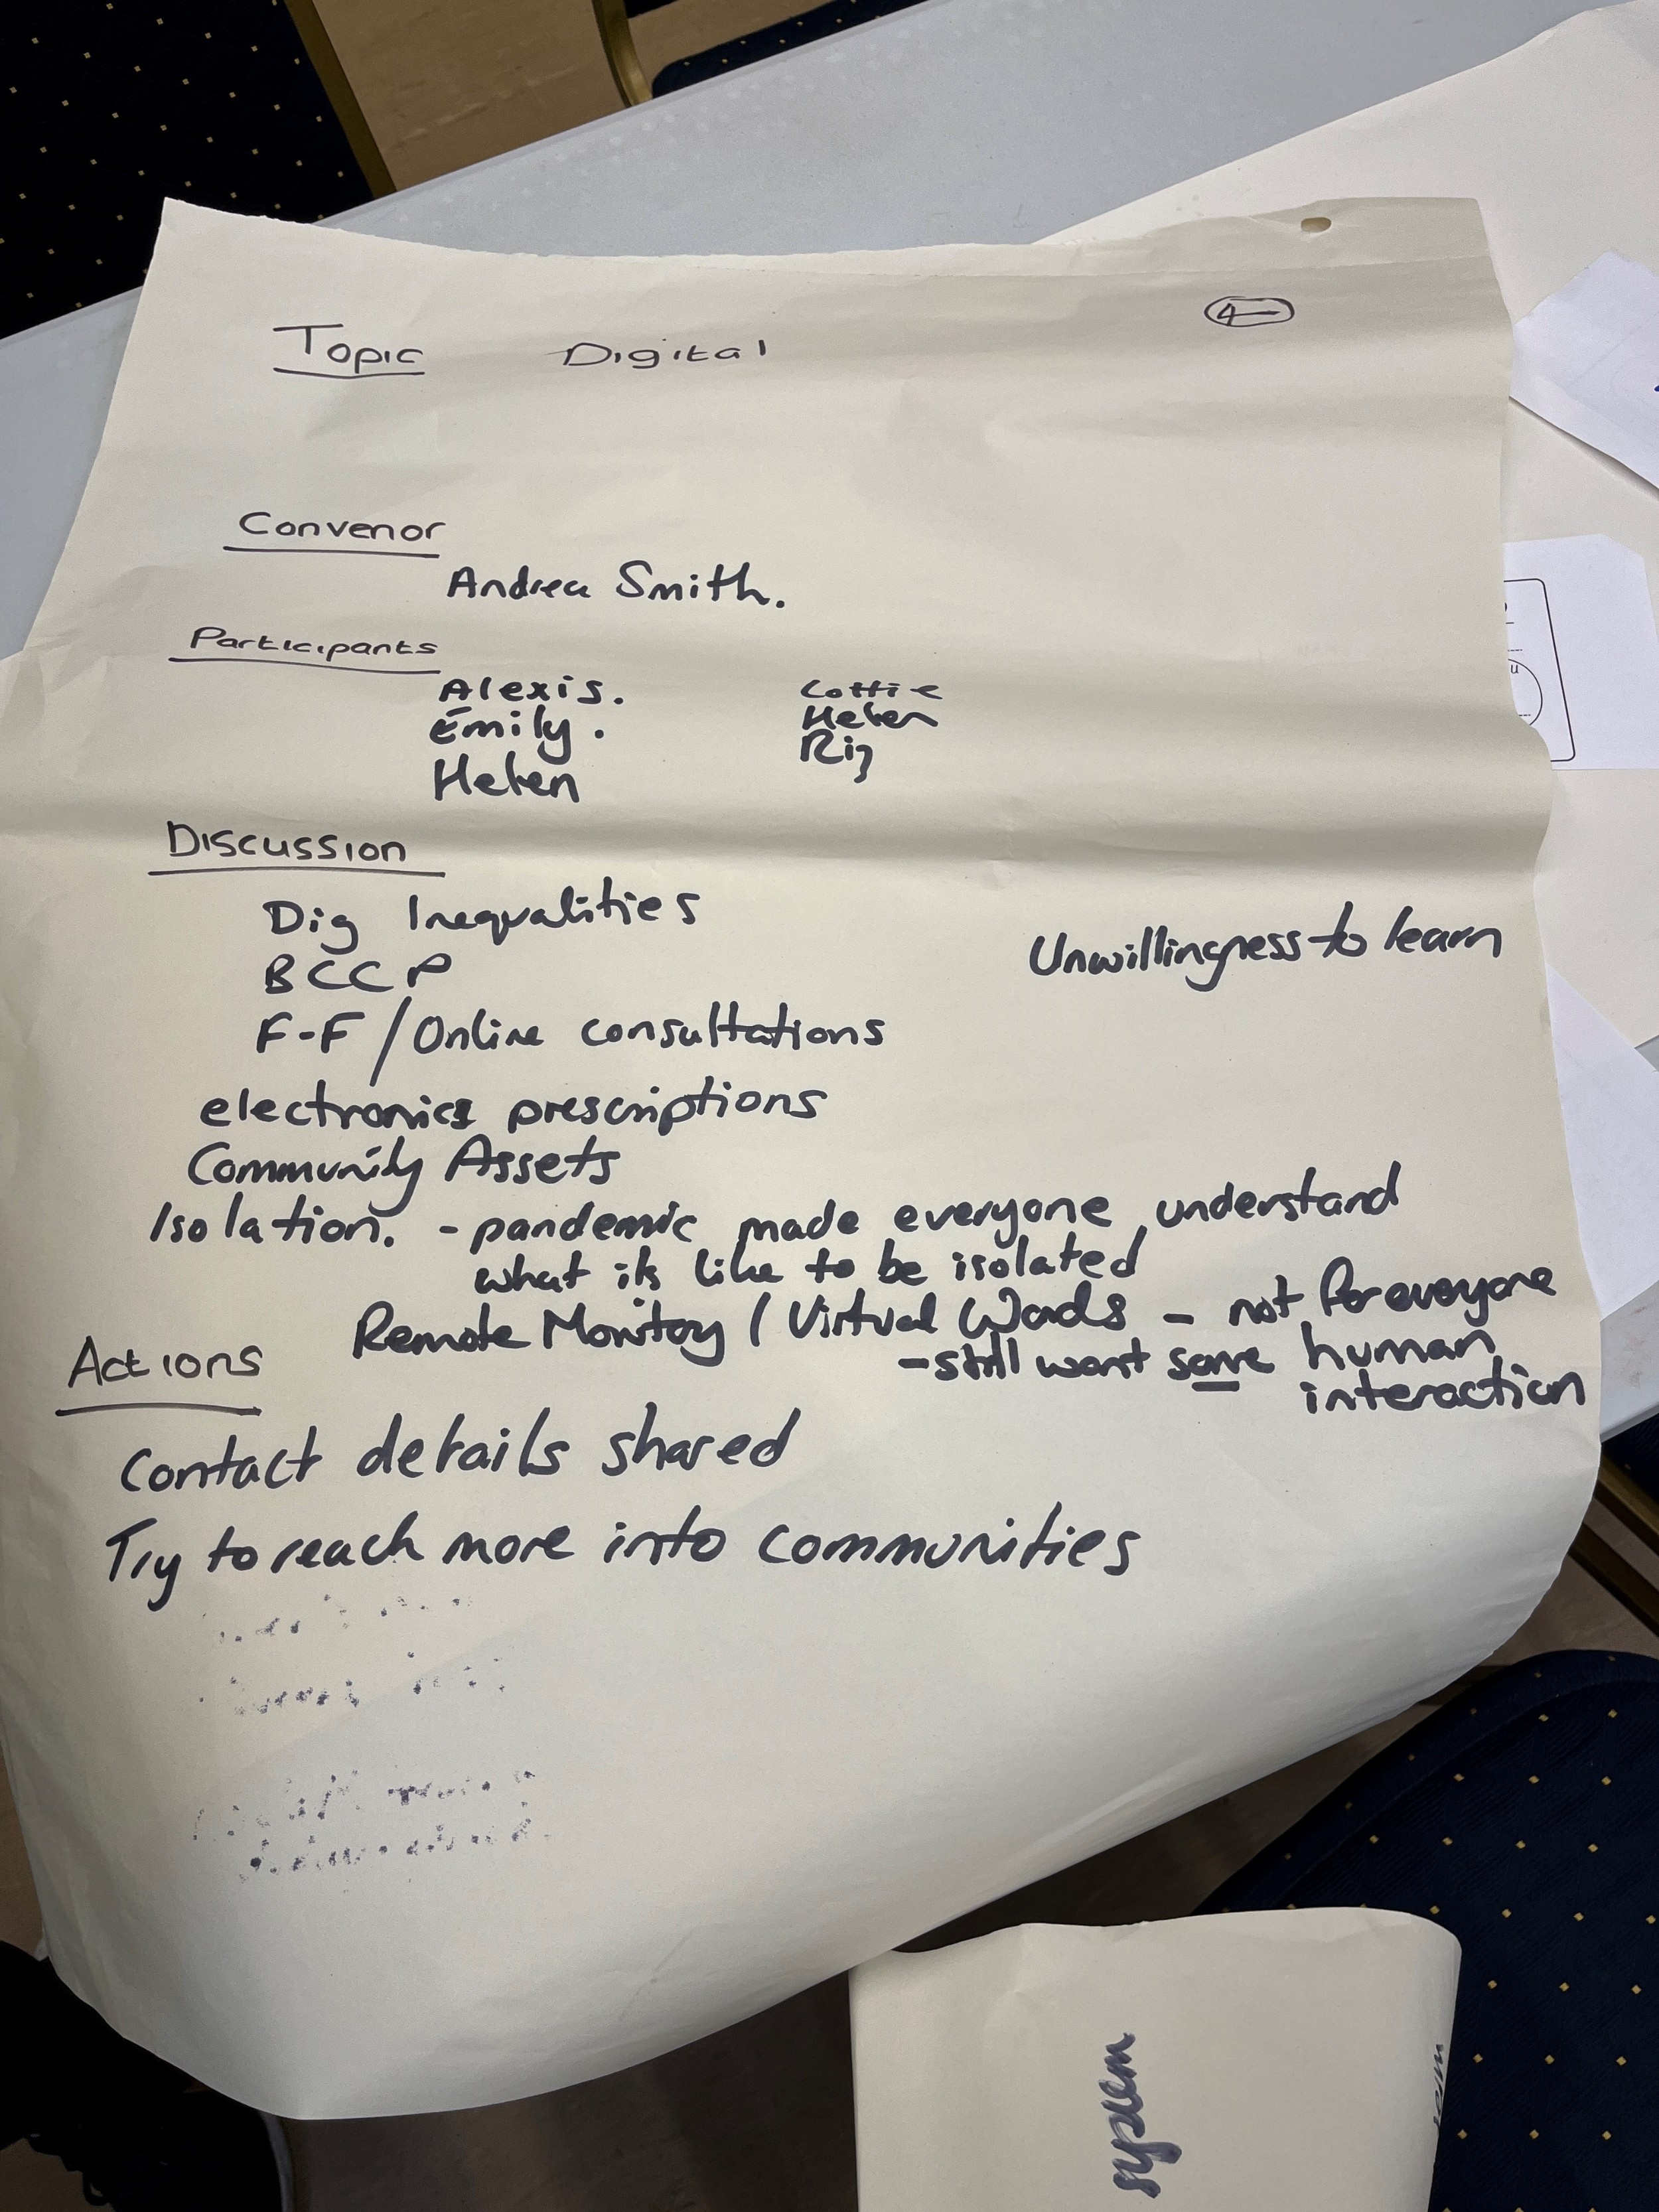 Topic Digital 4
Convenor
Andrea Smith.
Participants
Alexis. Lottie
Emily. Helen
Helen Riz
Discussion
Dig Inequalities
Unwillingness to learn
BCCP
F-F / Online consultations
electronics prescriptions
Community Assets
Isolation. - pandemic made everyone understand
what its like to be isolated
Remote Monitory / Virtual Wards - not for everyone
- still want some human
interaction
Actions
Contact details shared
Try to reach more into communities
system